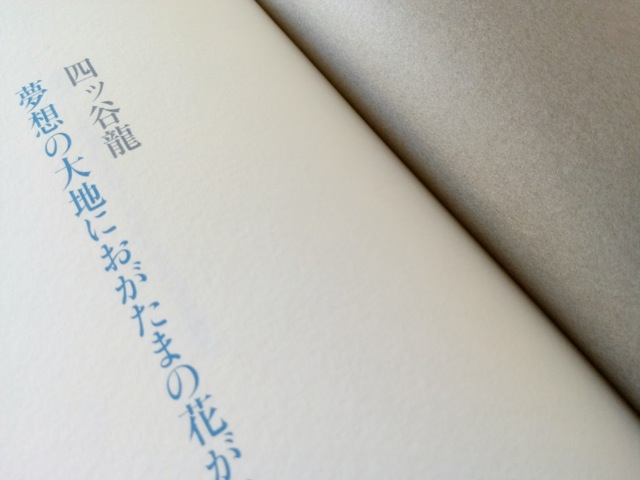 四ッ谷龍
夢想の大地におがたまの花が